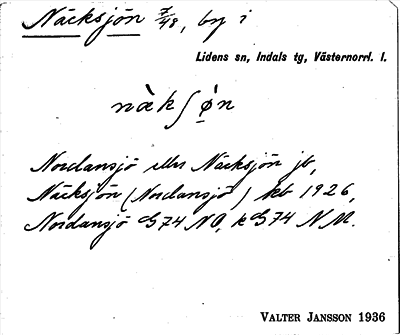 Näcksjön 7/48, by i
Lidens sn, Indals tg, Västernorrl. l.
nàkʃø̀n
Nordansjö eller Näcksjön jb,
Näcksjön (Nordansjö) kb 1926,
Nordansjö G74 NO, k G74 NM.
VALTER JANSSON 1936